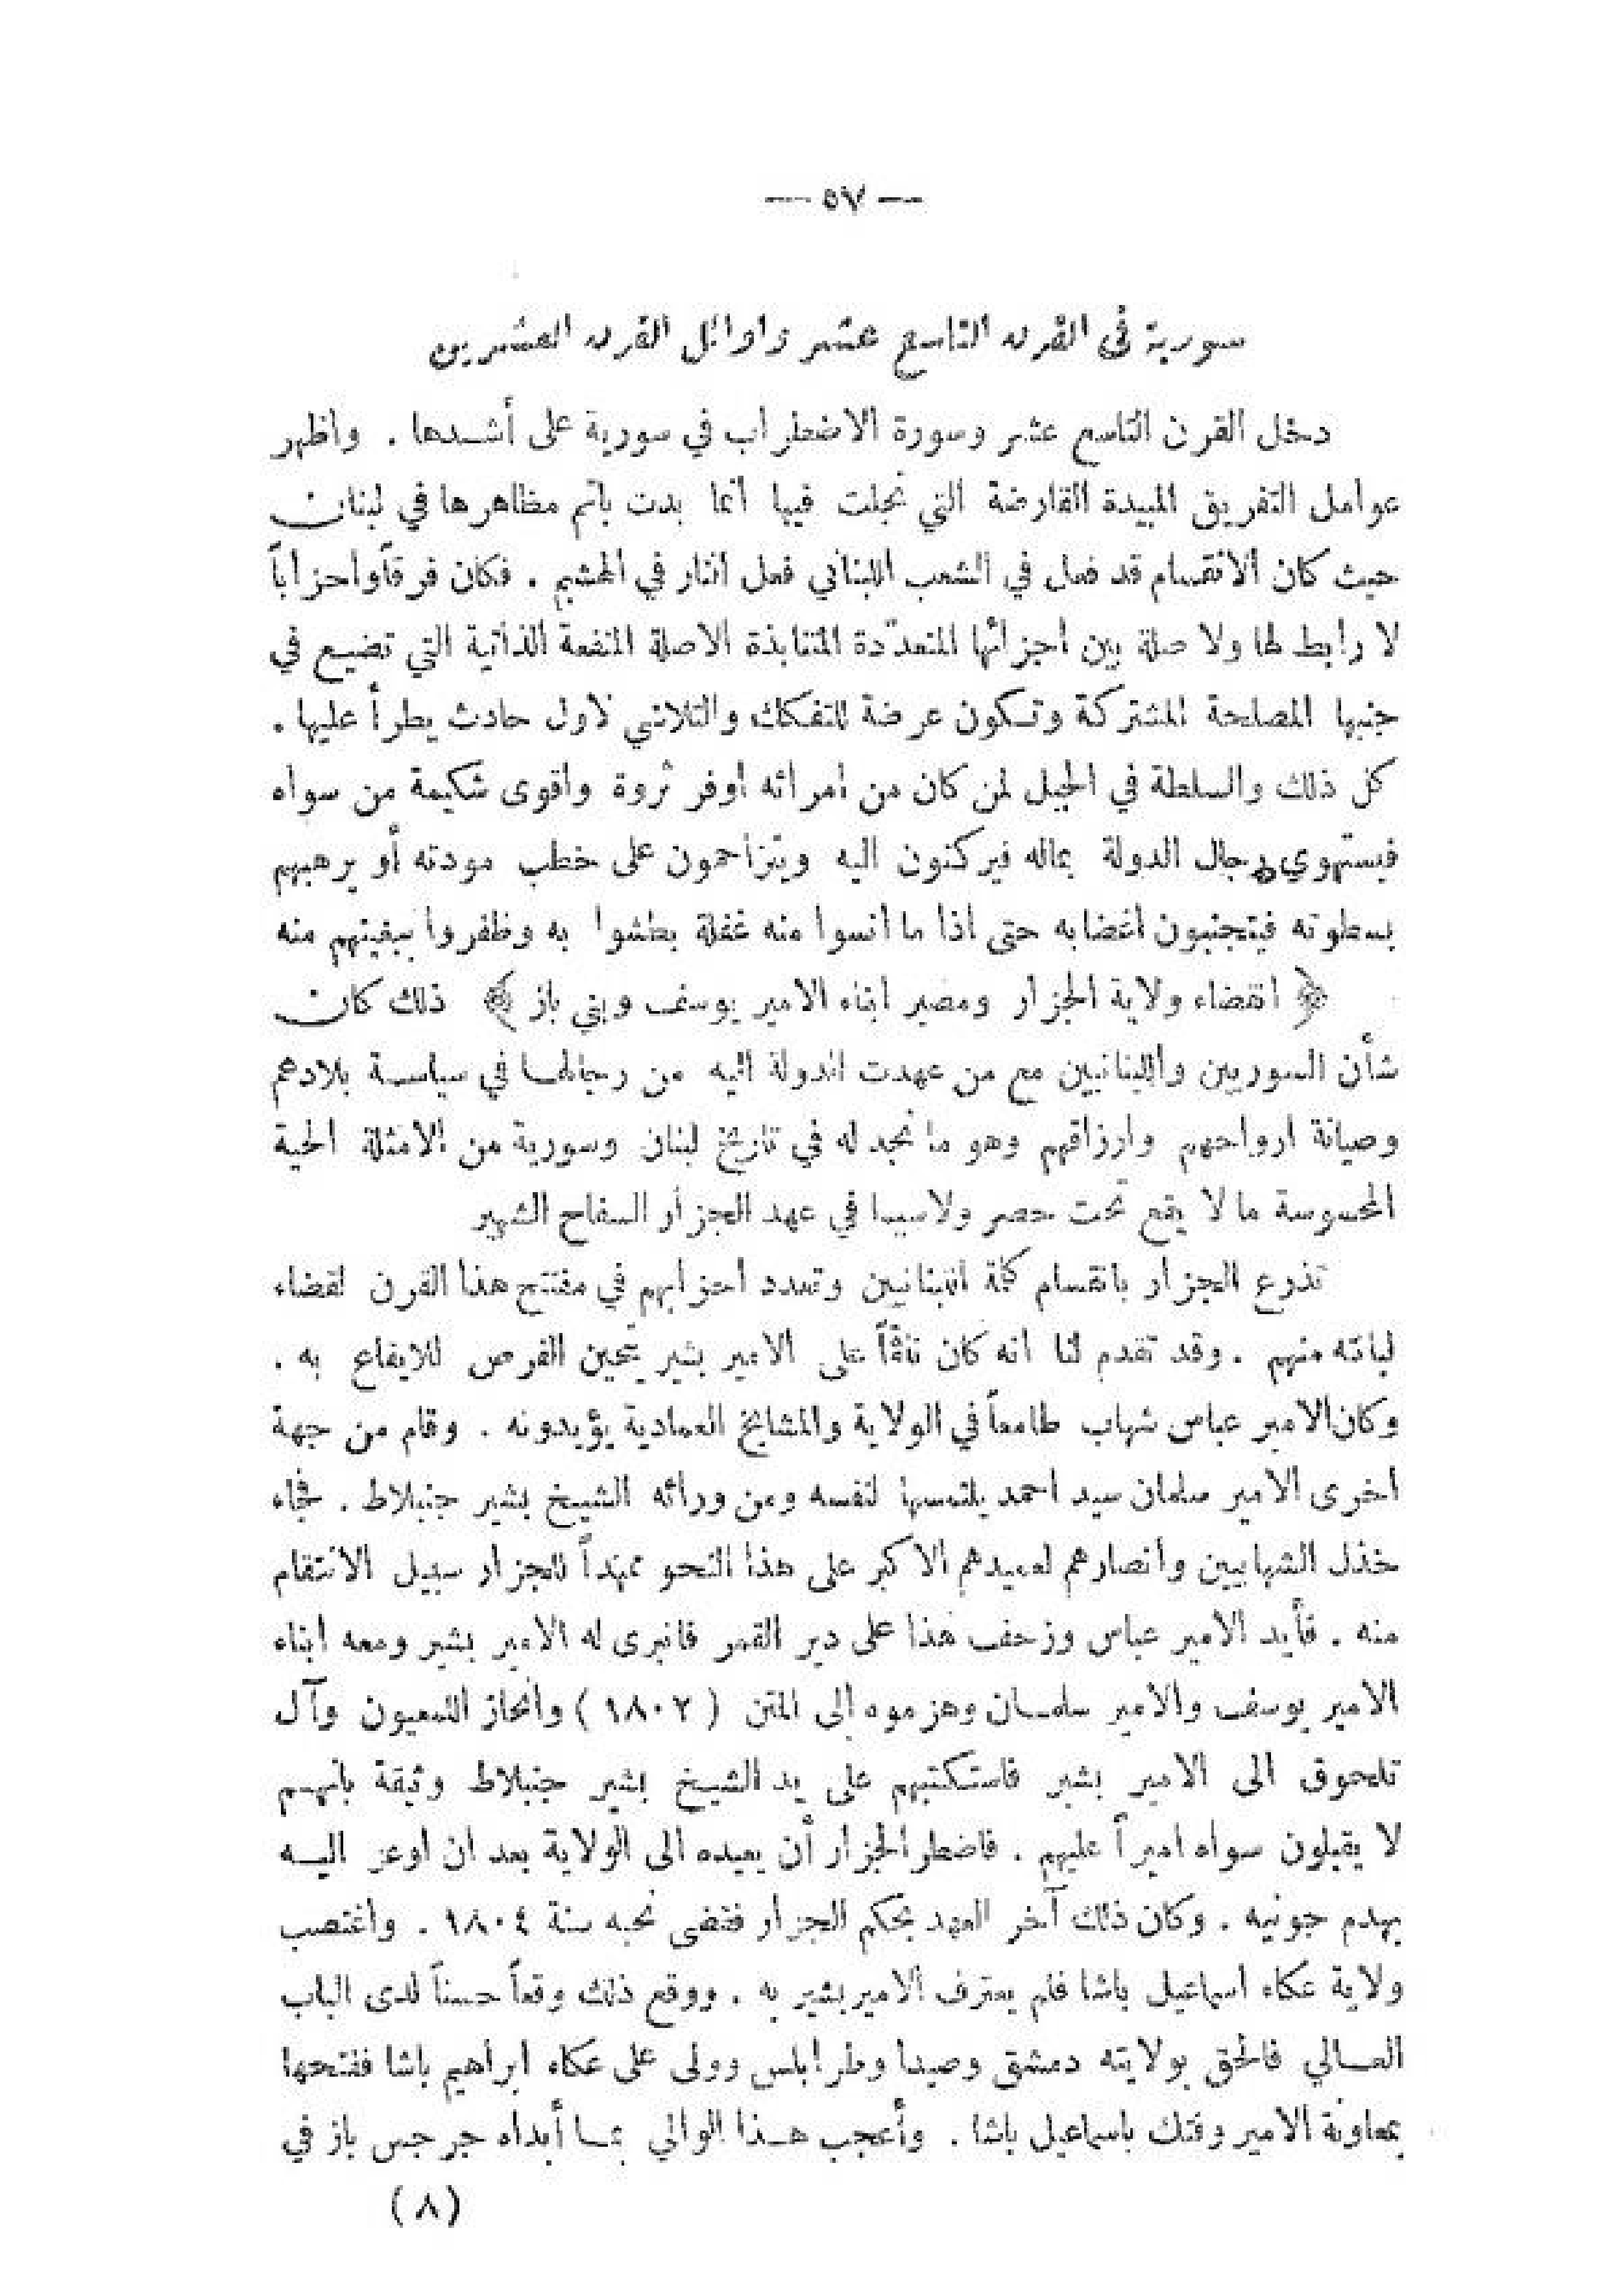 — ٥٧ —
سورية في القرن التاسع عشر واوائل القرن العشرين
دخل القرن التاسع عشر وسورة الاضطراب في سورية على أشدها . واظهر
عوامل التفريق المبيدة القارضة التي تجلت فيها انما بدت باتم مظاهرها في لبنان
حيث كان الانقسام قد فعل في الشعب اللبناني فعل النار في الهشيم . فكان فرقاً واحزاباً
لا رابط لها ولا صلة بين أجزائها المتعدّدة المتنابذة الا صلة المنفعة الذاتية التي تضيع في
جنبها المصلحة المشتركة وتكون عرضة للتفكك والتلاشي لاول حادث يطرأ عليها .
كل ذلك والسلطة في الجبل لمن كان من أمرائه أوفر ثروة واقوى شكيمة من سواه
فيستهوي رجال الدولة بماله فيركنون اليه ويتزاحمون على خطب مودته أو يرهبهم
بسطوته فيتجنبون اغضابه حتى اذا ما انسوا منه غفلة بطشوا به وظفروا ببغيتهم منه
﴿ انقضاء ولاية الجزار ومصير ابناء الامير يوسف وبني باز ﴾ ذلك كان
شأن السوريين واللبنانيين مع من عهدت الدولة اليه من رجالها في سياسة بلادهم
وصيانة ارواحهم وارزاقهم وهو ما نجد له في تاريخ لبنان وسورية من الامثلة الحية
المحسوسة ما لا يقع تحت حصر ولاسيما في عهد الجزار السفاح الشهير
تذرع الجزار بانقسام كلمة اللبنانيين وتعدد أحزابهم في مفتتح هذا القرن لقضاء
لبانته منهم . وقد تقدم لنا انه كان ناقماً على الامير بشير يتحين الفرص للايقاع به .
وكان الامير عباس شهاب طامعاً في الولاية والمشايخ العمادية يؤيدونه . وقام من جهة
أخرى الامير سلمان سيد احمد يلتمسها لنفسه ومن ورائه الشيخ بشير جنبلاط . فجاء
خذل الشهابيين وأنصارهم لعميدهم الاكبر على هذا النحو ممهداً للجزار سبيل الانتقام
منه . فأيد الامير عباس وزحف هذا على دير القمر فانبرى له الامير بشير ومعه ابناء
الامير يوسف والامير سلمان وهزموه إلى المتن ( ١٨٠٢ ) وانحاز اللمعيون وآل
تلحوق الى الامير بشير فاستكتبهم على يد الشيخ بشير جنبلاط وثيقة بانهم
لا يقبلون سواه اميراً عليهم . فاضطر الجزار أن يعيده الى الولاية بعد ان اوعز اليه
بهدم جونيه . وكان ذلك آخر العهد بحكم الجزار فقضى نحبه سنة ١٨٠٤ . واغتصب
ولاية عكاء اسماعيل باشا فلم يعترف الامير بشير به . ووقع ذلك وقعاً حسناً لدى الباب
العالي فالحق بولايته دمشق وصيدا وطرابلس وولى على عكاء ابراهيم باشا ففتحها
بمعاونة الامير وفتك باسماعيل باشا . وأعجب هذا الوالي بما أبداه جرجس باز في
(٨)